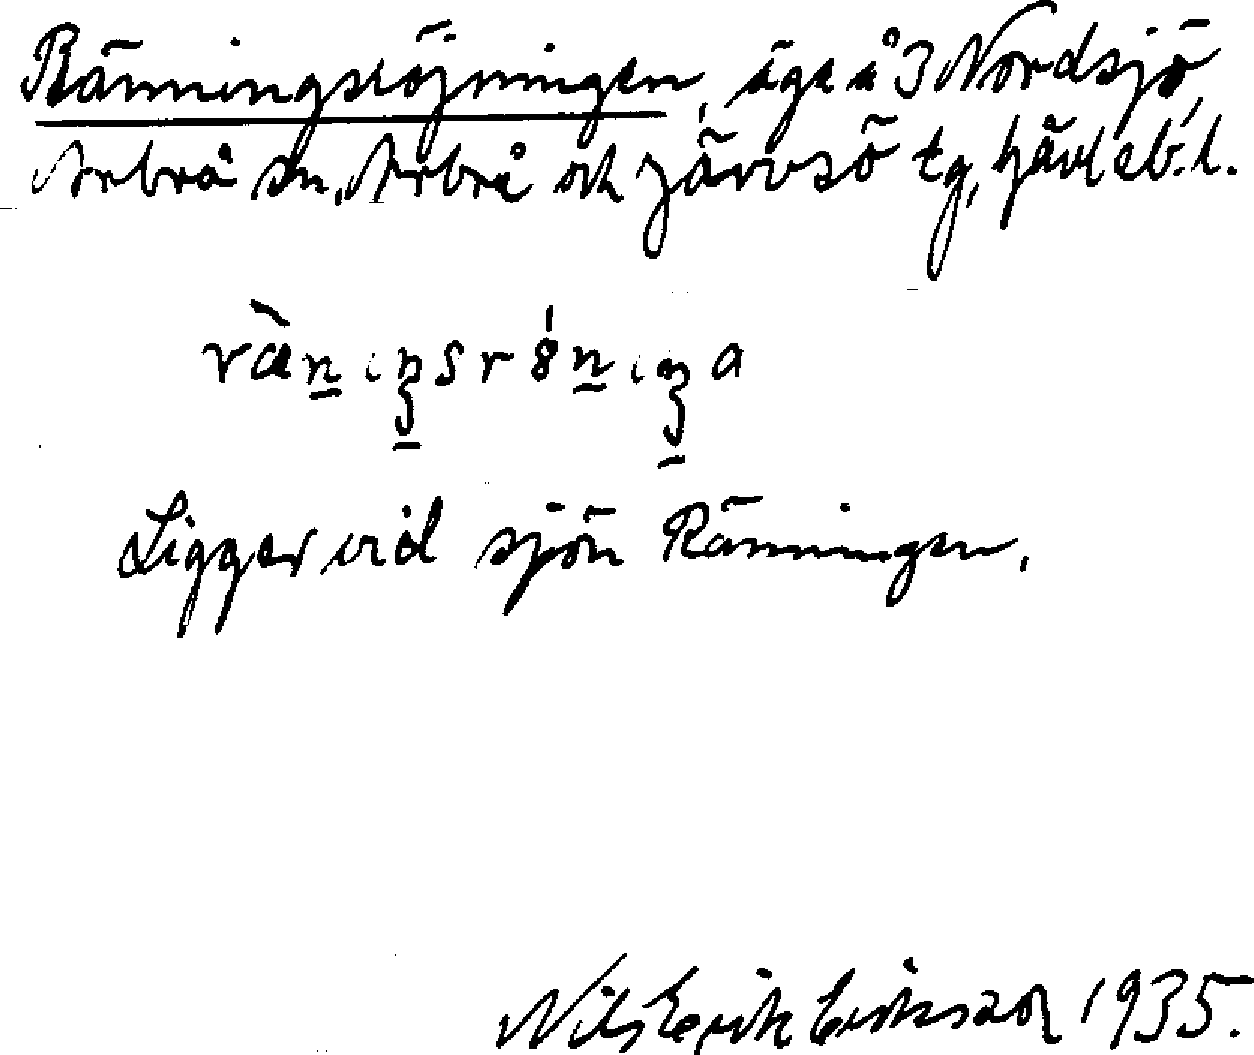 Ränningsröjningen, äga å 3 Nordsjö,
Arbrå sn, Arbrå och Järvsö tg, Gävleb. l.
rὰn̲ıŋ̲srȣ́n̲ıŋ̲a
Ligger vid sjön Ränningen.
Nils Erik Eriksson 1935.